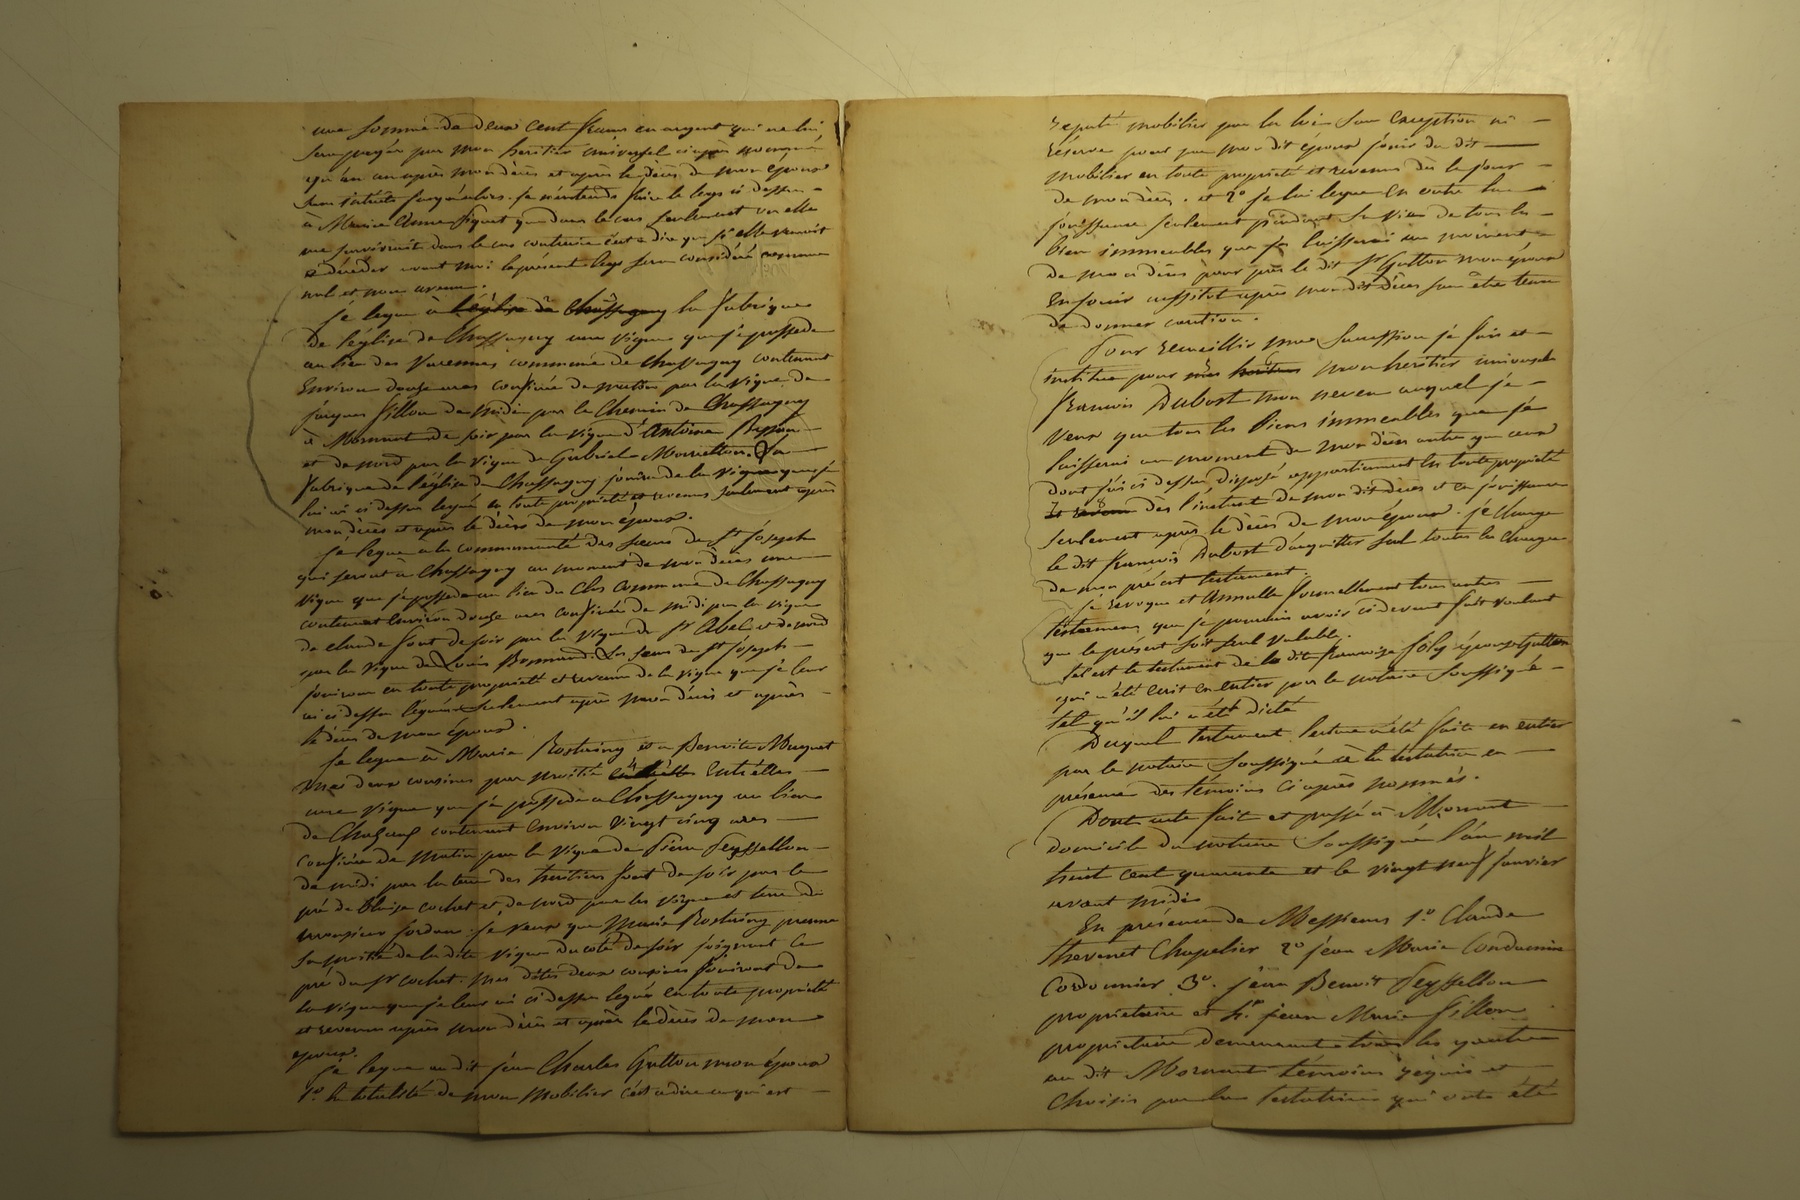 une somme de deux cent francs en argent qui ne lui
sera payée par mon héritier universel ci après nommé
qu'un an après mon décès et après le décès de mon époux
sans intérêts jusqu'alors. je n'entends faire le legs ci dessus
à Marie Anne que dans le cas seulement où elle
me survivrait dans le cas contraire c'est à dire que si elle venoit
a décéder avant moi le présent legs sera considéré comme
nul et non avenu.
je legue à l'église de Chassagny la fabrique
de l'église de Chassagny une vigne que je possede
au lieu des Varennes commune de Chassagny contenant
environ douze ares confinée de matin par la vigne de
jacques fillon de midi par le chemin de Chassagny
à Mornant de soir par la vigne d'Antoine
et de nord par la vigne de Gabriel La
fabrique de l'église de Chassagny jouira de la vigne que je
lui ai ci dessus legué en toute propriété et revenus seulement après
mon décès et après le décès de mon époux.
je legue a la communauté des sœurs de St Joseph
qui seront à Chassagny au moment de mon décès une
vigne que je possede au lieu du Clos commune de Chassagny
contenant environ douze ares confinée de midi par la vigne
de claude font de soir par la vigne de Sr Abel et de nord
par la vigne de Louis Les sœurs de St joseph
jouiront en toute propriété et revenus de la vigne que je leur
ai ci dessus léguée seulement après mon décès et après
le décès de mon époux.
je legue à Marie et a Benoite Muguet
mes deux cousines par moitié entre elles
une vigne que je possede a Chassagny au lieu
de contenant environ vingt cinq ares
confinée de matin par la vigne de Pierre Peyssellon
de midi par la terre des héritiers font de soir par le
pré de Blaise cochet et de nord par les vigne et terre de
monsieur jordan. je veux que Marie prenne
sa moitié de la dite vigne du coté de soir joignant le
pré du Sr cochet. mes dites deux cousines jouiront de
la vigne que je leur ai ci dessus legué en toute propriété
et revenus après mon décès et après le décès de mon
époux.
je legue au dit jean Charles Gutton mon époux
1o la totalité de mon mobilier c'est a dire ce qui est
réputé mobilier par la loi sans exception ni
réserve pour par mon dit époux jouir du dit
mobilier en toute propriété et revenus dès le jour
de mon décès. et 2o je lui legue en outre la
jouissance seulement pendant sa vie de tous les
bien immeubles que je laisserai au moment
de mon décès pour par le dit Sr Gutton mon époux
en jouir aussitot après mon dit décès sans être tenu
de donner caution.
Pour recueillir ma succession je fais et
institue pour mes héritiers mon héritier universel
francois Dubost mon neveu auquel je
veux que tous les biens immeubles que je
laisserai au moment de mon décès autre que ceux
dont j'ai ci dessus disposé appartiennent en toute propriété
et revenus dès l'instant de mon dit décès et en jouissance
seulement après le décès de mon époux. je charge
le dit francois Dubost d'acquitter seul toutes les charges
de mon présent testament.
je révoque et annulle formellement tous autres
testamens que je pourrais avoir ci devant fait voulant
que le présent soit seul valable.
tel est le testament de la dite francoise épouse Gutton
qui a été écrit en entier par le notaire soussigné
tel qu'il lui a été dicté
Duquel testament lecture a été faite en entier
par le notaire soussigné à la testatrice en
présence des témoins ci après nommés.
Dont acte fait et passé à Mornant
domicile du notaire soussigné l'an mil
huit cent quarante et le vingt neuf janvier
avant midi
En présence de Messieurs 1o Claude
thevenet Chapelier 2o jean Marie Condamin
Cordonnier 3o. jean Benoit Peyssellon
propriétaire et 4o. jean Marie fillon
propriétaire demeurants tous les quatre
au dit Mornant témoins requis et
choisis par la testatrice qui ont été